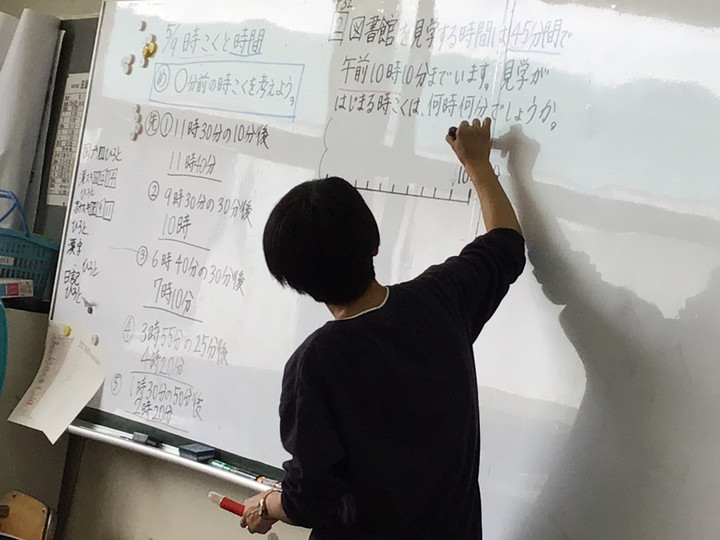 5/9 時こくと時間
め ○分前の時こくを考えよう。
① 11時30分の10分後
11時40分
② 9時30分の30分後
10時
③ 6時40分の30分後
7時10分
④ 3時55分の25分後
4時20分
⑤ 1時30分の50分後
2時20分
漢字
日記
2 図書館を見学する時間は45分間で
午前10時10分までいます。見学が
はじまる時こくは、何時何分でしょうか。